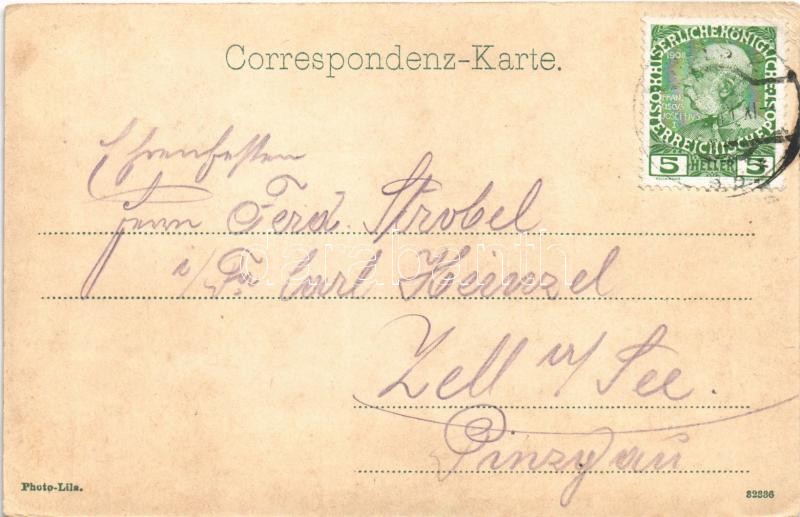 Correspondenz-Karte.
KAISERLICHE KÖNIGLICHE
ÖSTERREICHISCHE POST
1908
FRAN
CISCVS
JOSEPHVS
I
XI
5 HELLER 5
Herrn Ferd. Strobel
i/Fa Carl Heinzel
Zell a/See.
Pinzgau
darabanth
Photo-Lila.
82886